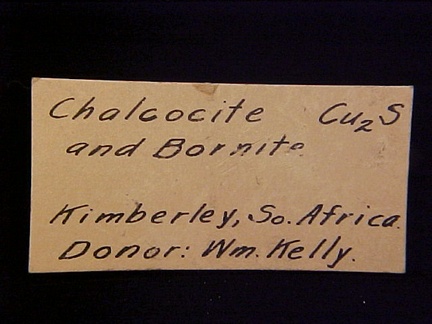 Chalcocite Cu₂S
and Bornite
Kimberley, So. Africa.
Donor: Wm. Kelly.